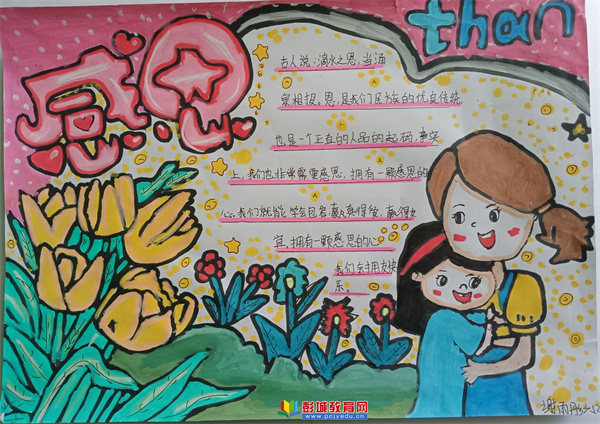 感恩
than
古人说:滴水之恩,当涌
泉相报。恩,是我们民族的优良传统
也是一个正直的人品的起码,事实
上,我们也非常需要感恩,拥有一颗感恩的
心,我们就能学会包容,赢
宜,拥有一颗感恩的心
我们会拥
系。
谢雨彤
彭城教育网
www.pcjyedu.cn